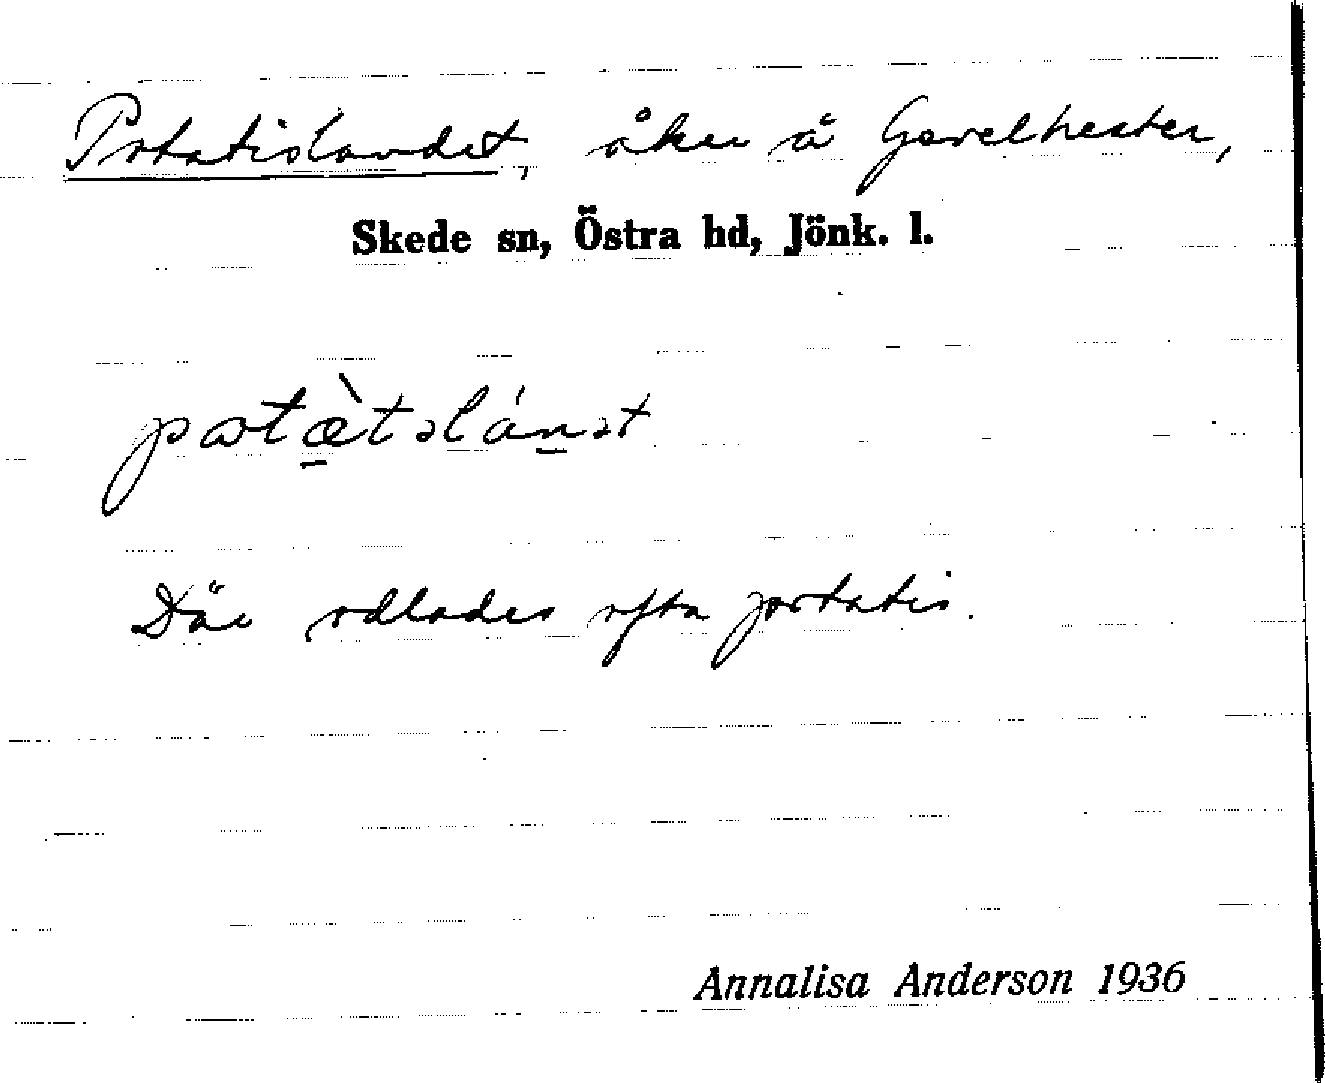 Potatislandet, åker å Gavelhester,
Skede sn, Östra hd, Jönk. l.
patæ̀tslánət
Där odlades ofta potatis.
Annalisa Anderson 1936